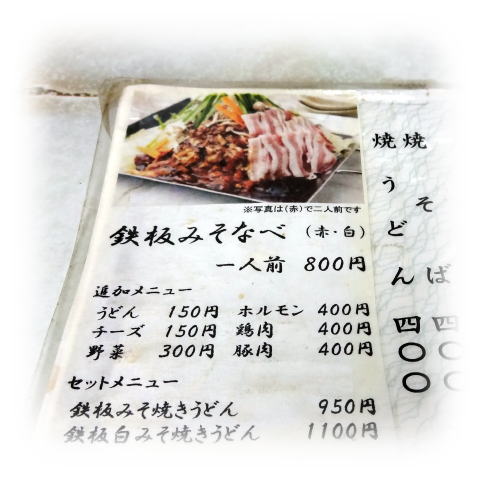 ※写真は(赤)で二人前です
鉄板みそなべ (赤・白)
一人前 800円
追加メニュー
うどん 150円 ホルモン 400円
チーズ 150円 鶏肉 400円
野菜 300円 豚肉 400円
セットメニュー
鉄板みそ焼きうどん 950円
鉄板白みそ焼きうどん 1100円
焼そば 四〇〇
焼うどん 四〇〇